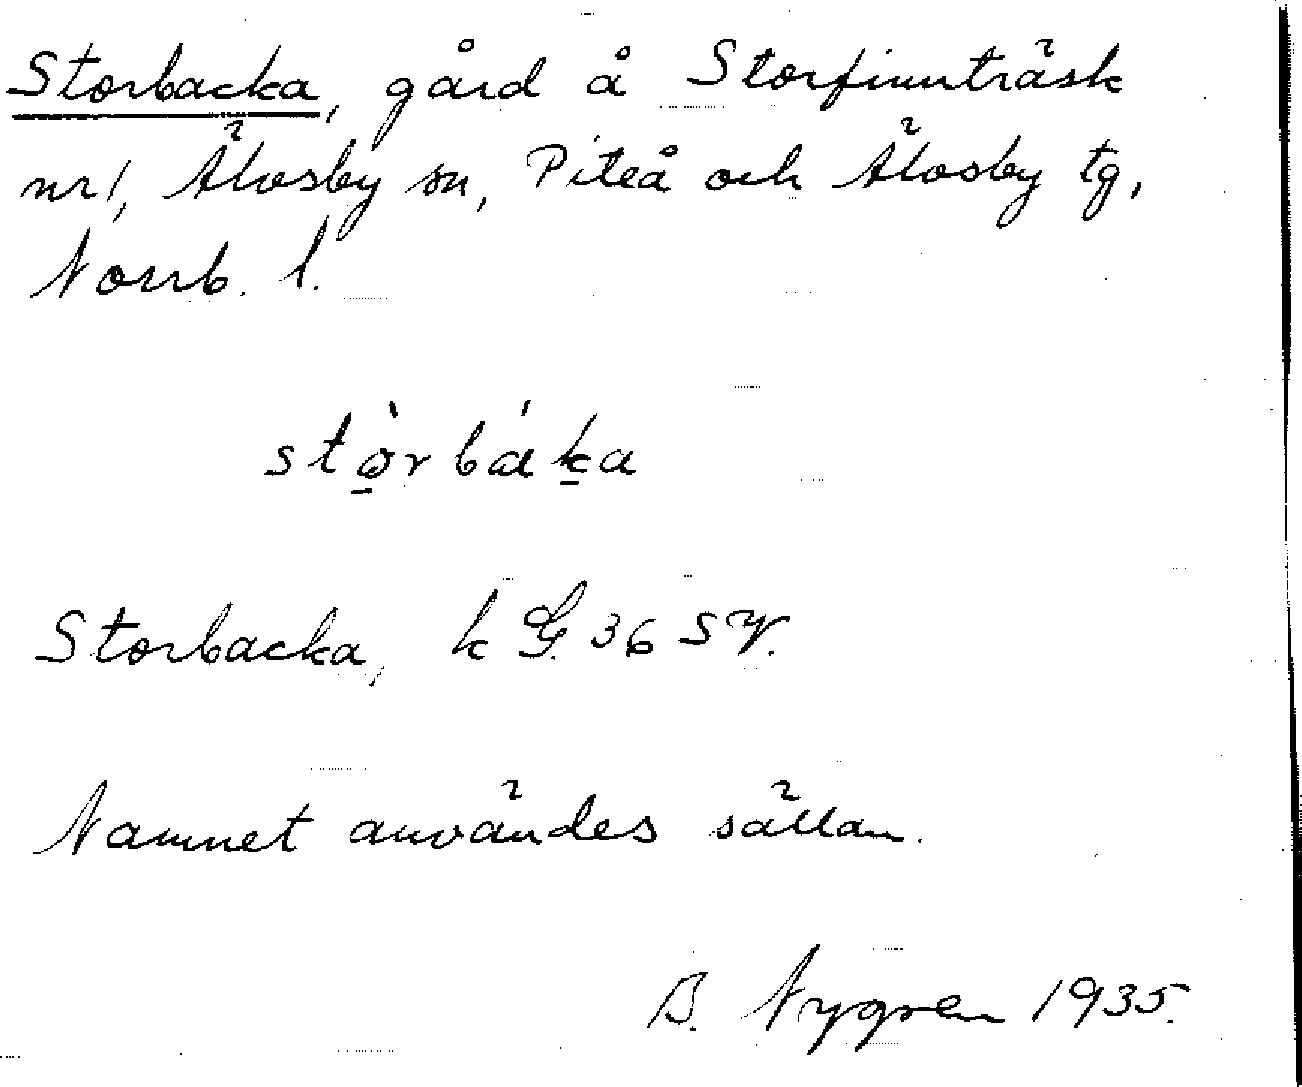 Storbacka, gård å Storfinnträsk
nr 1, Älvsby sn, Piteå och Älvsby tg,
Norrb. l.
stø̠̀rbáḵa
Storbacka, k G. 36 SV.
Namnet användes sällan.
B. Nygren 1935.